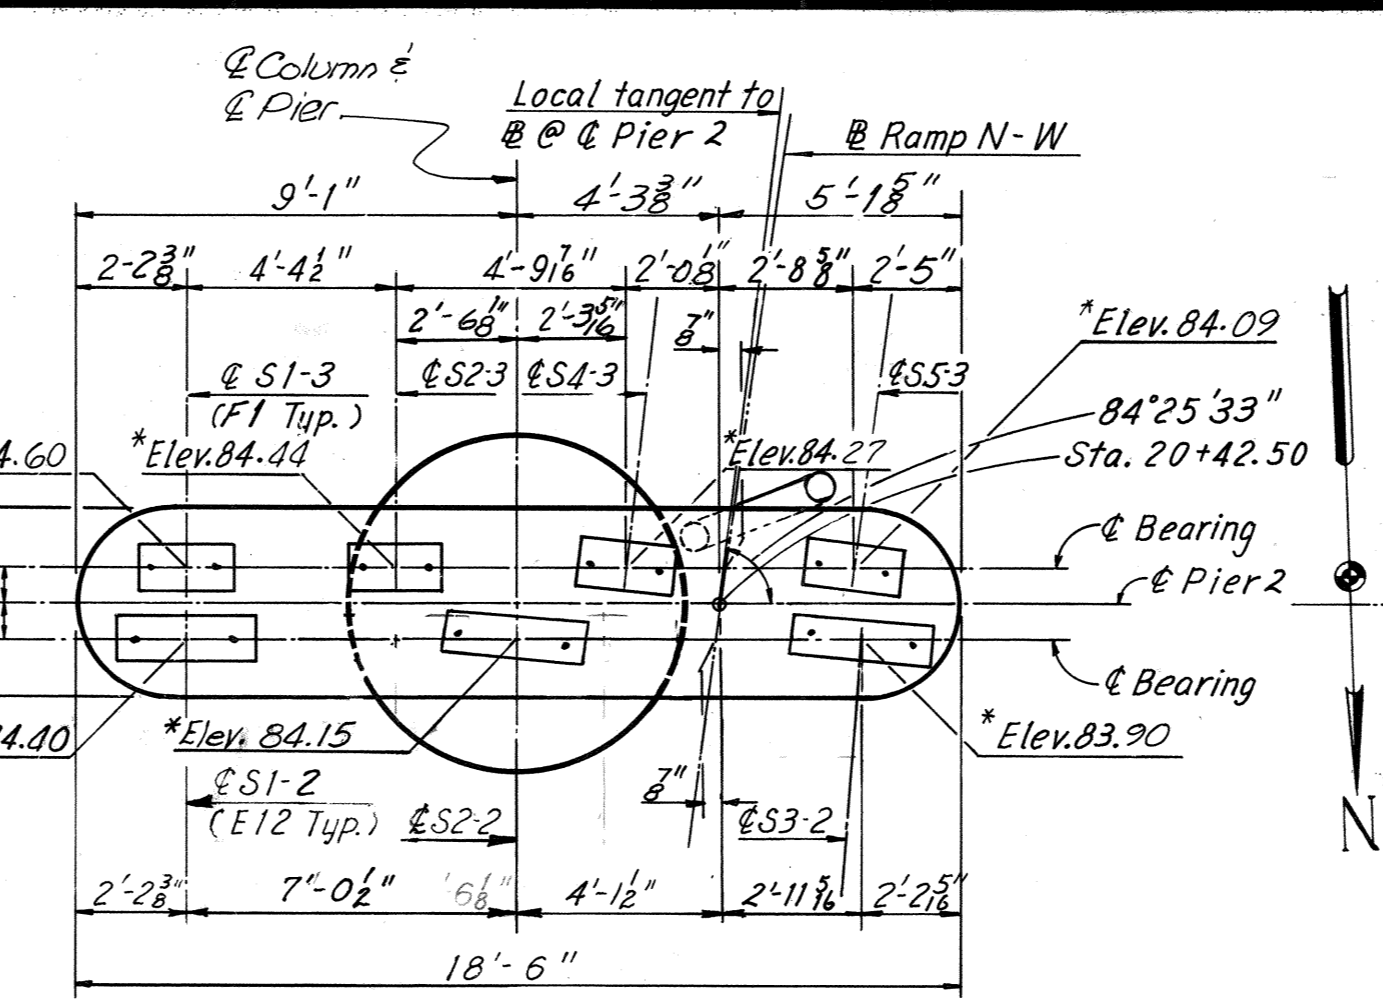 ℄ Column &
℄ Pier
Local tangent to
BL @ ℄ Pier 2
BL Ramp N-W
9'-1"
4'-3 3/8"
5'-1 5/8"
2-2 3/8"
4'-4 1/2"
4'-9 7/16"
2'-0 1/8"
2'-8 5/8"
2'-5"
2'-6 1/8"
2'-3 5/16"
7/8"
*Elev. 84.09
℄ S1-3
(F1 Typ.)
℄ S2-3
℄ S4-3
℄ S5-3
84°25'33"
Sta. 20+42.50
4.60
*Elev. 84.44
*Elev. 84.27
℄ Bearing
℄ Pier 2
℄ Bearing
4.40
*Elev. 84.15
*Elev. 83.90
℄ S1-2
(E12 Typ.)
℄ S2-2
7/8"
℄ S3-2
N
2'-2 3/8"
7'-0 1/2"
'6 1/8"
4'-1 1/2"
2'-11 5/16
2'-2 5/16"
18'-6"